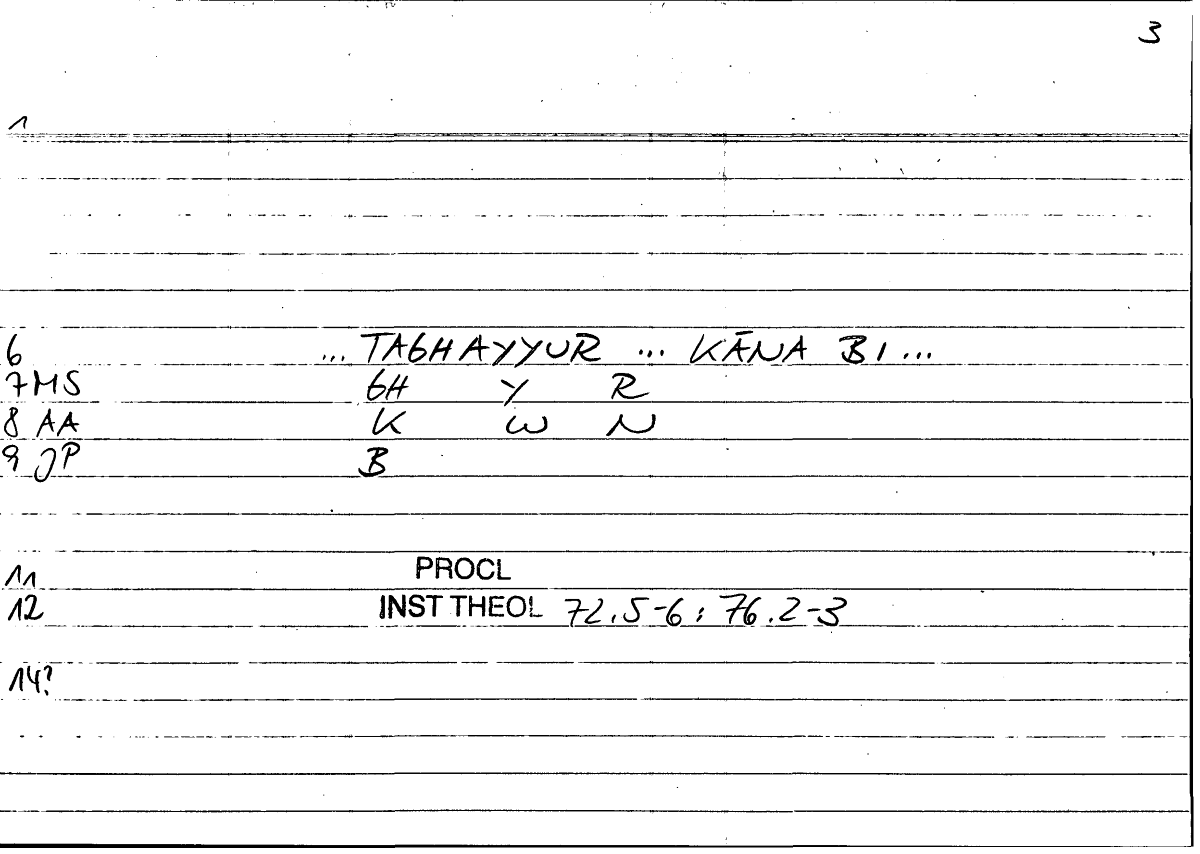 3
1
6 ... TAGHAYYUR ... KĀNA BI ...
7 MS GH Y R
8 AA K W N
9 JP B
11 PROCL
12 INST THEOL 72.5-6; 76.2-3
14?